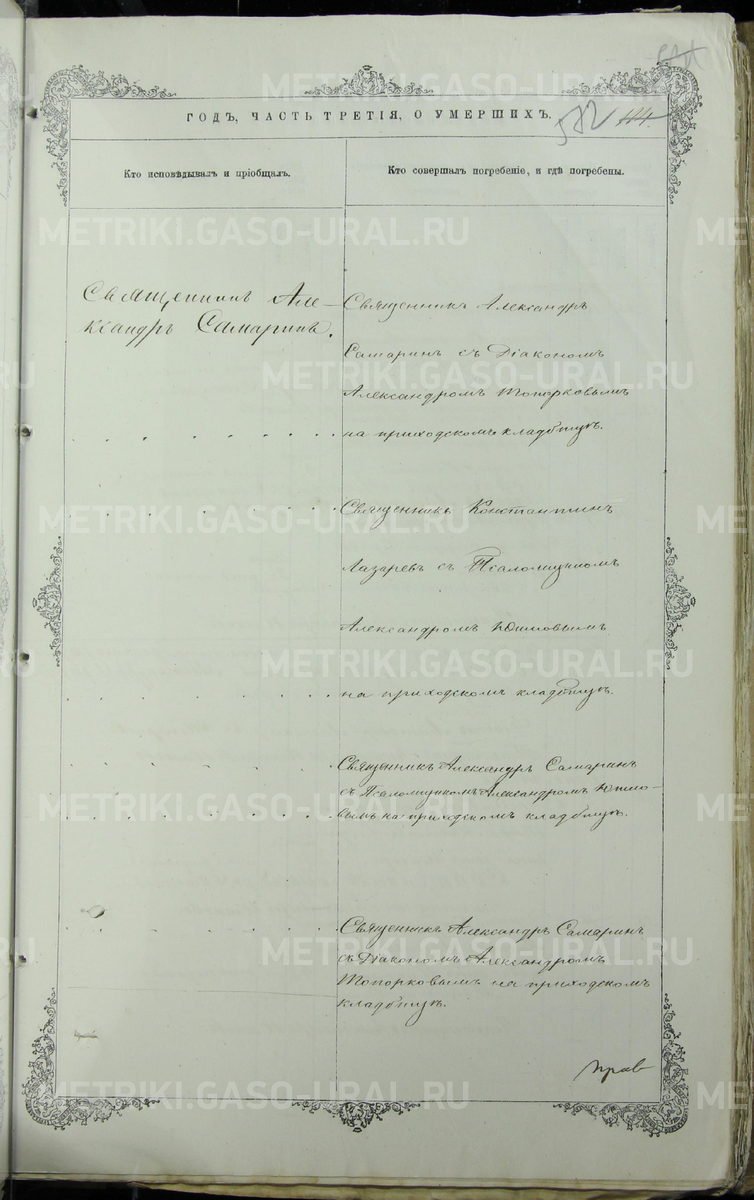 ГОДЪ, ЧАСТЬ ТРЕТІЯ, О УМЕРШИХЪ.
572 114
Кто исповѣдывалъ и пріобщалъ.
Кто совершалъ погребеніе, и гдѣ погребены.
Священникъ Але-
ксандръ Самаринъ.
Священникъ Александръ
Самаринъ съ Діакономъ
Александромъ Топорковымъ
на приходскомъ кладбищѣ.
Священникъ Константинъ
Лазаревъ съ Псаломщикомъ
Александромъ Юшковымъ
на приходскомъ кладбищѣ.
Священникъ Александръ Самаринъ
съ Псаломщикомъ Александромъ Юшко-
вымъ на приходскомъ кладбищѣ.
Священникъ Александръ Самаринъ
съ Діакономъ Александромъ
Топорковымъ на приходскомъ
кладбищѣ.
METRIKI.GASO-URAL.RU